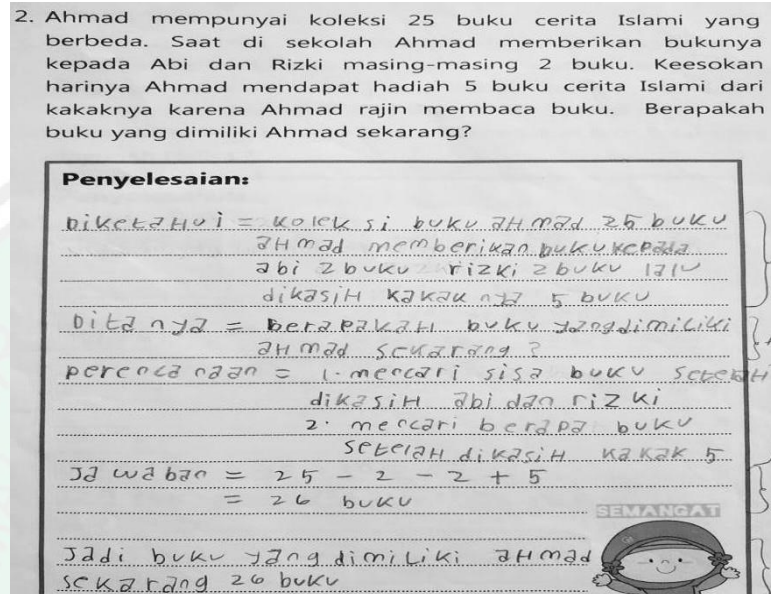 2. Ahmad mempunyai koleksi 25 buku cerita Islami yang
berbeda. Saat di sekolah Ahmad memberikan bukunya
kepada Abi dan Rizki masing-masing 2 buku. Keesokan
harinya Ahmad mendapat hadiah 5 buku cerita Islami dari
kakaknya karena Ahmad rajin membaca buku. Berapakah
buku yang dimiliki Ahmad sekarang?
Penyelesaian:
DiketaHui = koleksi buku aHmad 25 buku
aHmad memberikan buku kepada
abi 2 buku rizki 2 buku lalu
dikasiH kakaknya 5 buku
Ditanya = berapakaH buku yang dimiliki
aHmad sekarang?
perencanaan = 1. mencari sisa buku setelaH
dikasiH abi dan rizki
2. mencari berapa buku
setelaH dikasiH kakak 5
Jawaban = 25 - 2 - 2 + 5
= 26 buku
SEMANGAT
Jadi buku yang dimiliki aHmad
sekarang 26 buku